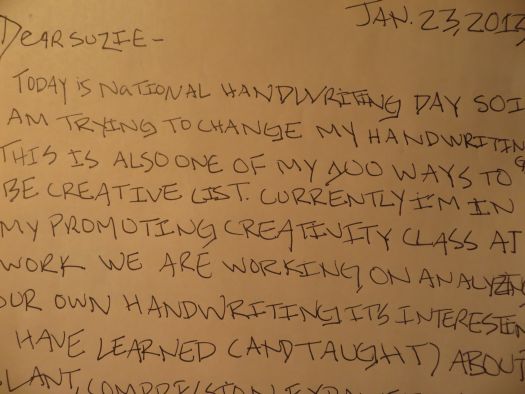 JAN. 23, 2013
DEAR SUZIE -
TODAY IS NATIONAL HANDWRITING DAY SO I
AM TRYING TO CHANGE MY HANDWRITING
THIS IS ALSO ONE OF MY 100 WAYS TO
BE CREATIVE LIST. CURRENTLY I'M IN
MY PROMOTING CREATIVITY CLASS AT
WORK WE ARE WORKING ON ANALYZING
OUR OWN HANDWRITING ITS INTERESTING
HAVE LEARNED (AND TAUGHT) ABOUT